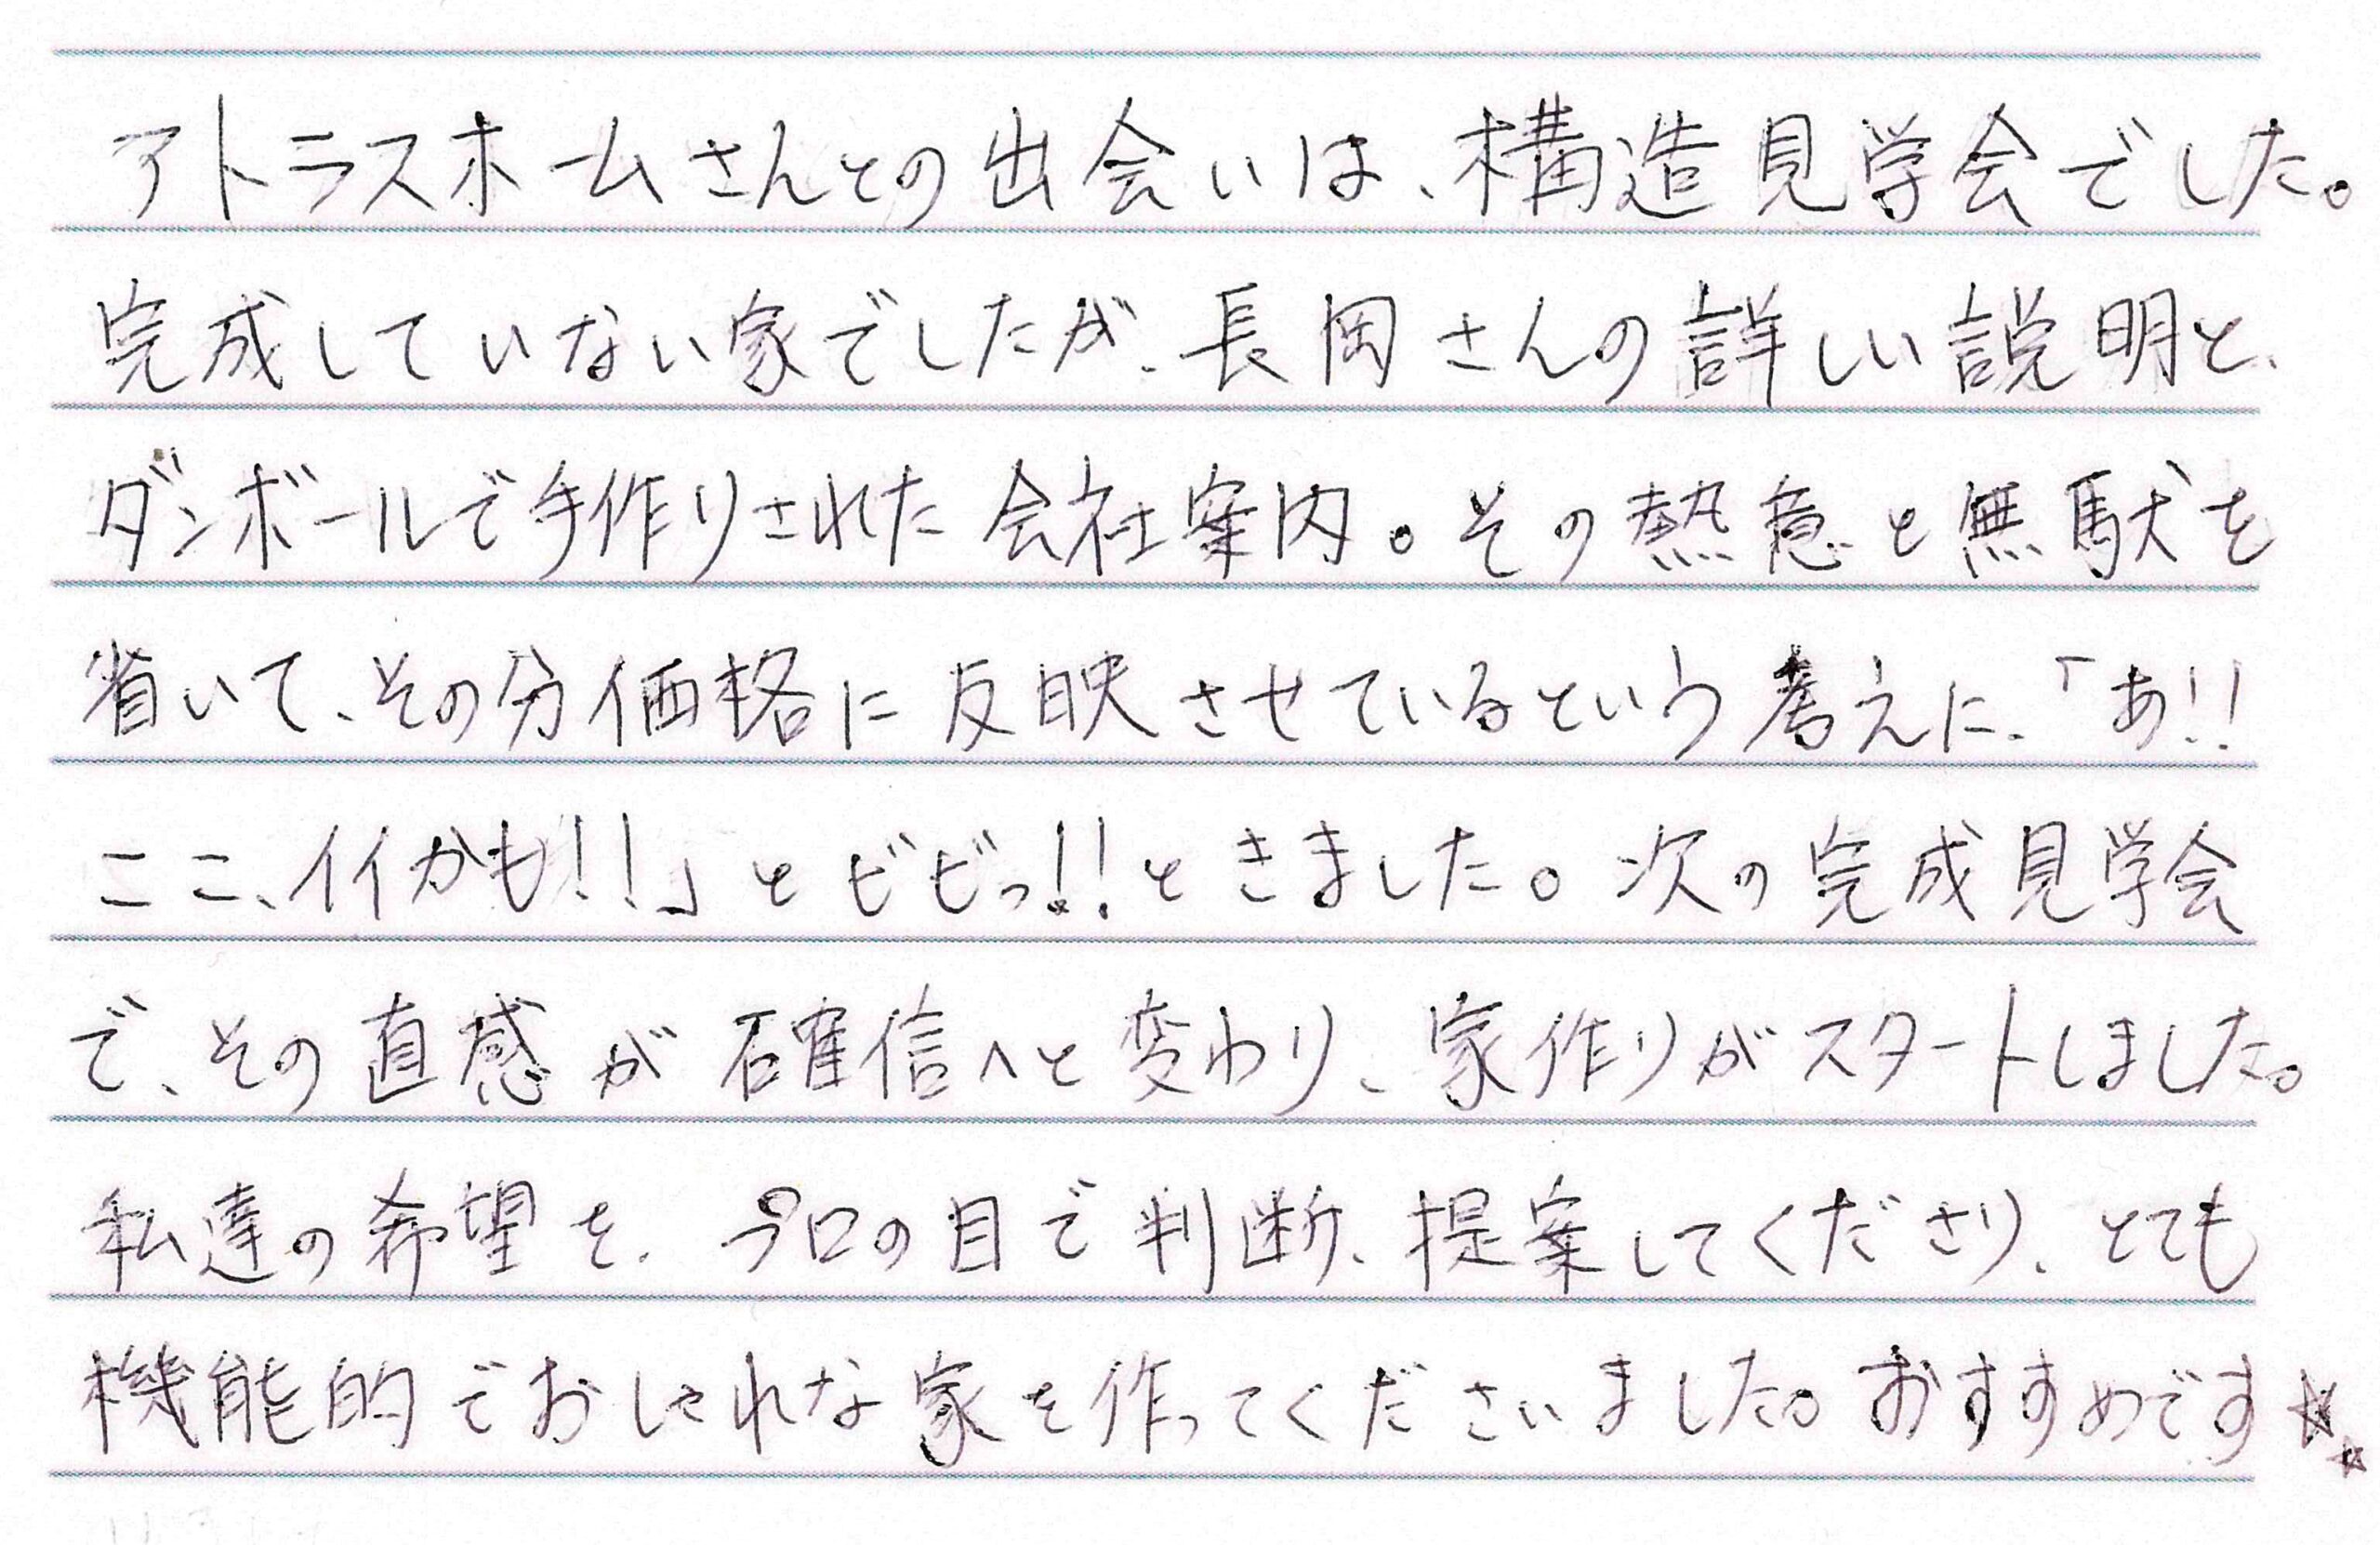 アトラスホームさんとの出会いは、構造見学会でした。
完成していない家でしたが、長岡さんの詳しい説明と、
ダンボールで手作りされた会社案内。その熱意と無駄を
省いて、その分価格に反映させているという考えに、「あ!!
ここ、イイかも!!」とビビっ!!ときました。次の完成見学会
で、その直感が確信へと変わり、家作りがスタートしました。
私達の希望を、プロの目で判断、提案してくださり、とても
機能的でおしゃれな家を作ってくださいました。おすすめです☆☆